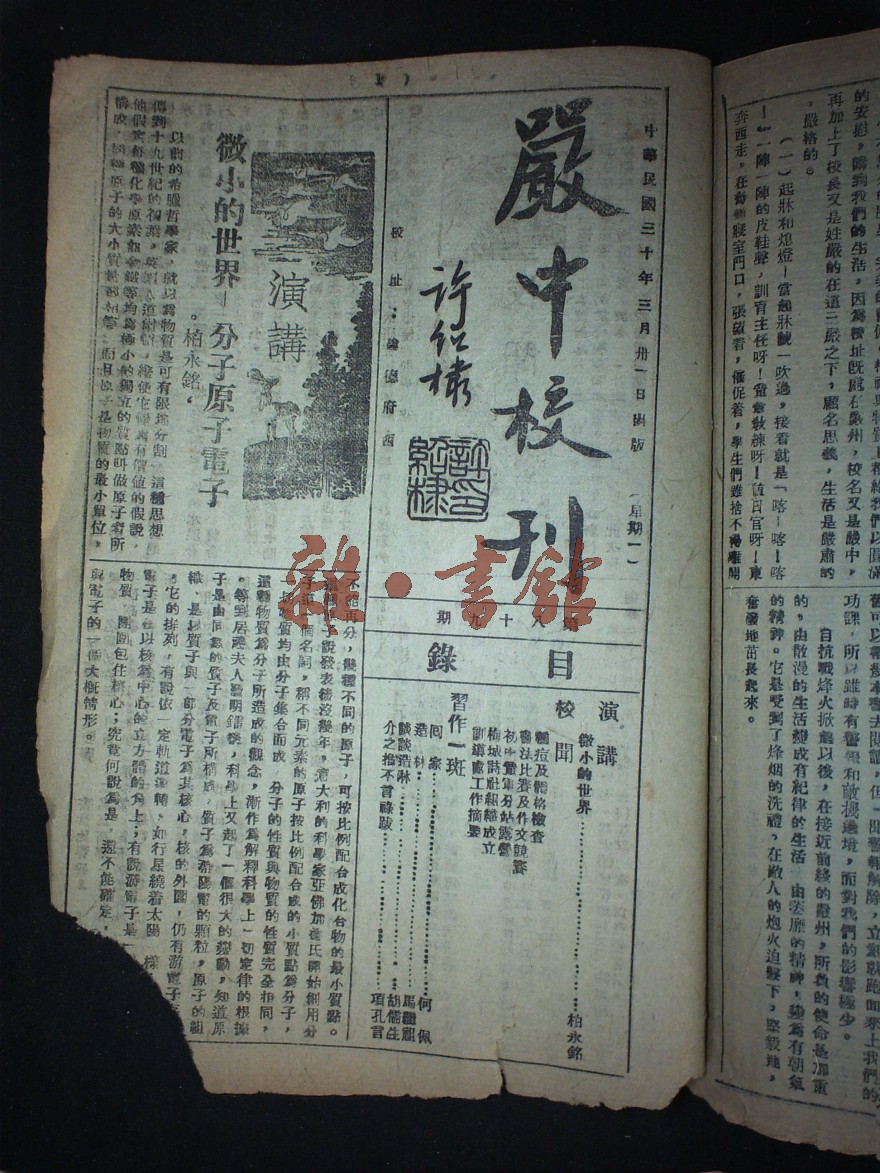 中華民國三十年三月卅一日出版 (星期一)
嚴中校刊
許紹棣
許紹棣印
校址:德府西
第八十九期
目錄
演講
微小的世界…………柏永銘
校聞
種痘及體格檢查
書法比賽及作文競賽
初中童軍分站露營
梅城詩社組織成立
訓導處工作摘要
習作一斑
回家…………何佩
造林…………馬繼祖
談談造林…………胡儒生
介之推不言祿跋…………項孔言
演講
微小的世界-分子原子電子
。柏永銘。
以前的希臘哲學家,就以為物質是可有限地分割,這種思想
傳到十九世紀的初葉,英人道爾頓,總使它成為有價值的假說,
他假定每種化學原素都含微等均為極小的獨立的質點叫做原子者所
構成,同種原子的大小質量都相等,而且原子是物質的最小單位,
不能再分,幾種不同的原子,可按比例配合成化合物的最小質點。
這個原子說發表後沒幾年,意大利的科學家亞佛加德氏開始創用分
子這一個名詞,稱不同元素的原子按比例配合成的小質點為分子,
一切物質均由分子集合而成,分子的性質與物質的性質完全相同,
這種物質為分子所造成的觀念,漸作為解釋科學上一切定律的根據
。等到居禮夫人發明鐳後,科學上又起了一個很大的變動,知道原
子是由同數的質子及電子所構成,質子為帶陽電的顆粒,原子的組
織,是以質子與一部分電子為其核心,核的外圍,仍有游電子
。它的排列,有說依一定軌道運轉,如行星繞着太陽一樣
電子是在以核為中心的立方體的角上;有說游電子是一
物質,團團包住核心;究竟何說為是,還不能確定,
與電子的一個大概情形。
再加上了校長又是姓嚴的在這三嚴之下,顧名思義,生活是嚴肅的
,嚴格的。
(一)起牀和熄燈-當起牀號一吹過,接着就是「喀-喀-喀
-」一陣一陣的皮鞋聲,訓育主任呀!童軍教練呀!值日官呀!東
奔西走,在每個寢室門口,張望着,催促着,學生們雖捨不得離開
功課,所以雖時有警報和敵機過境,而對我們的影響極少。
自抗戰烽火掀起以後,在接近前綫的嚴州,所負的使命是加重
的,由散漫的生活變成有紀律的生活,由萎靡的精神,變為有朝氣
的精神。它是受到了烽烟的洗禮,在敵人的炮火迫擊下,堅毅地,
奮發地茁長起來。
雜·書館